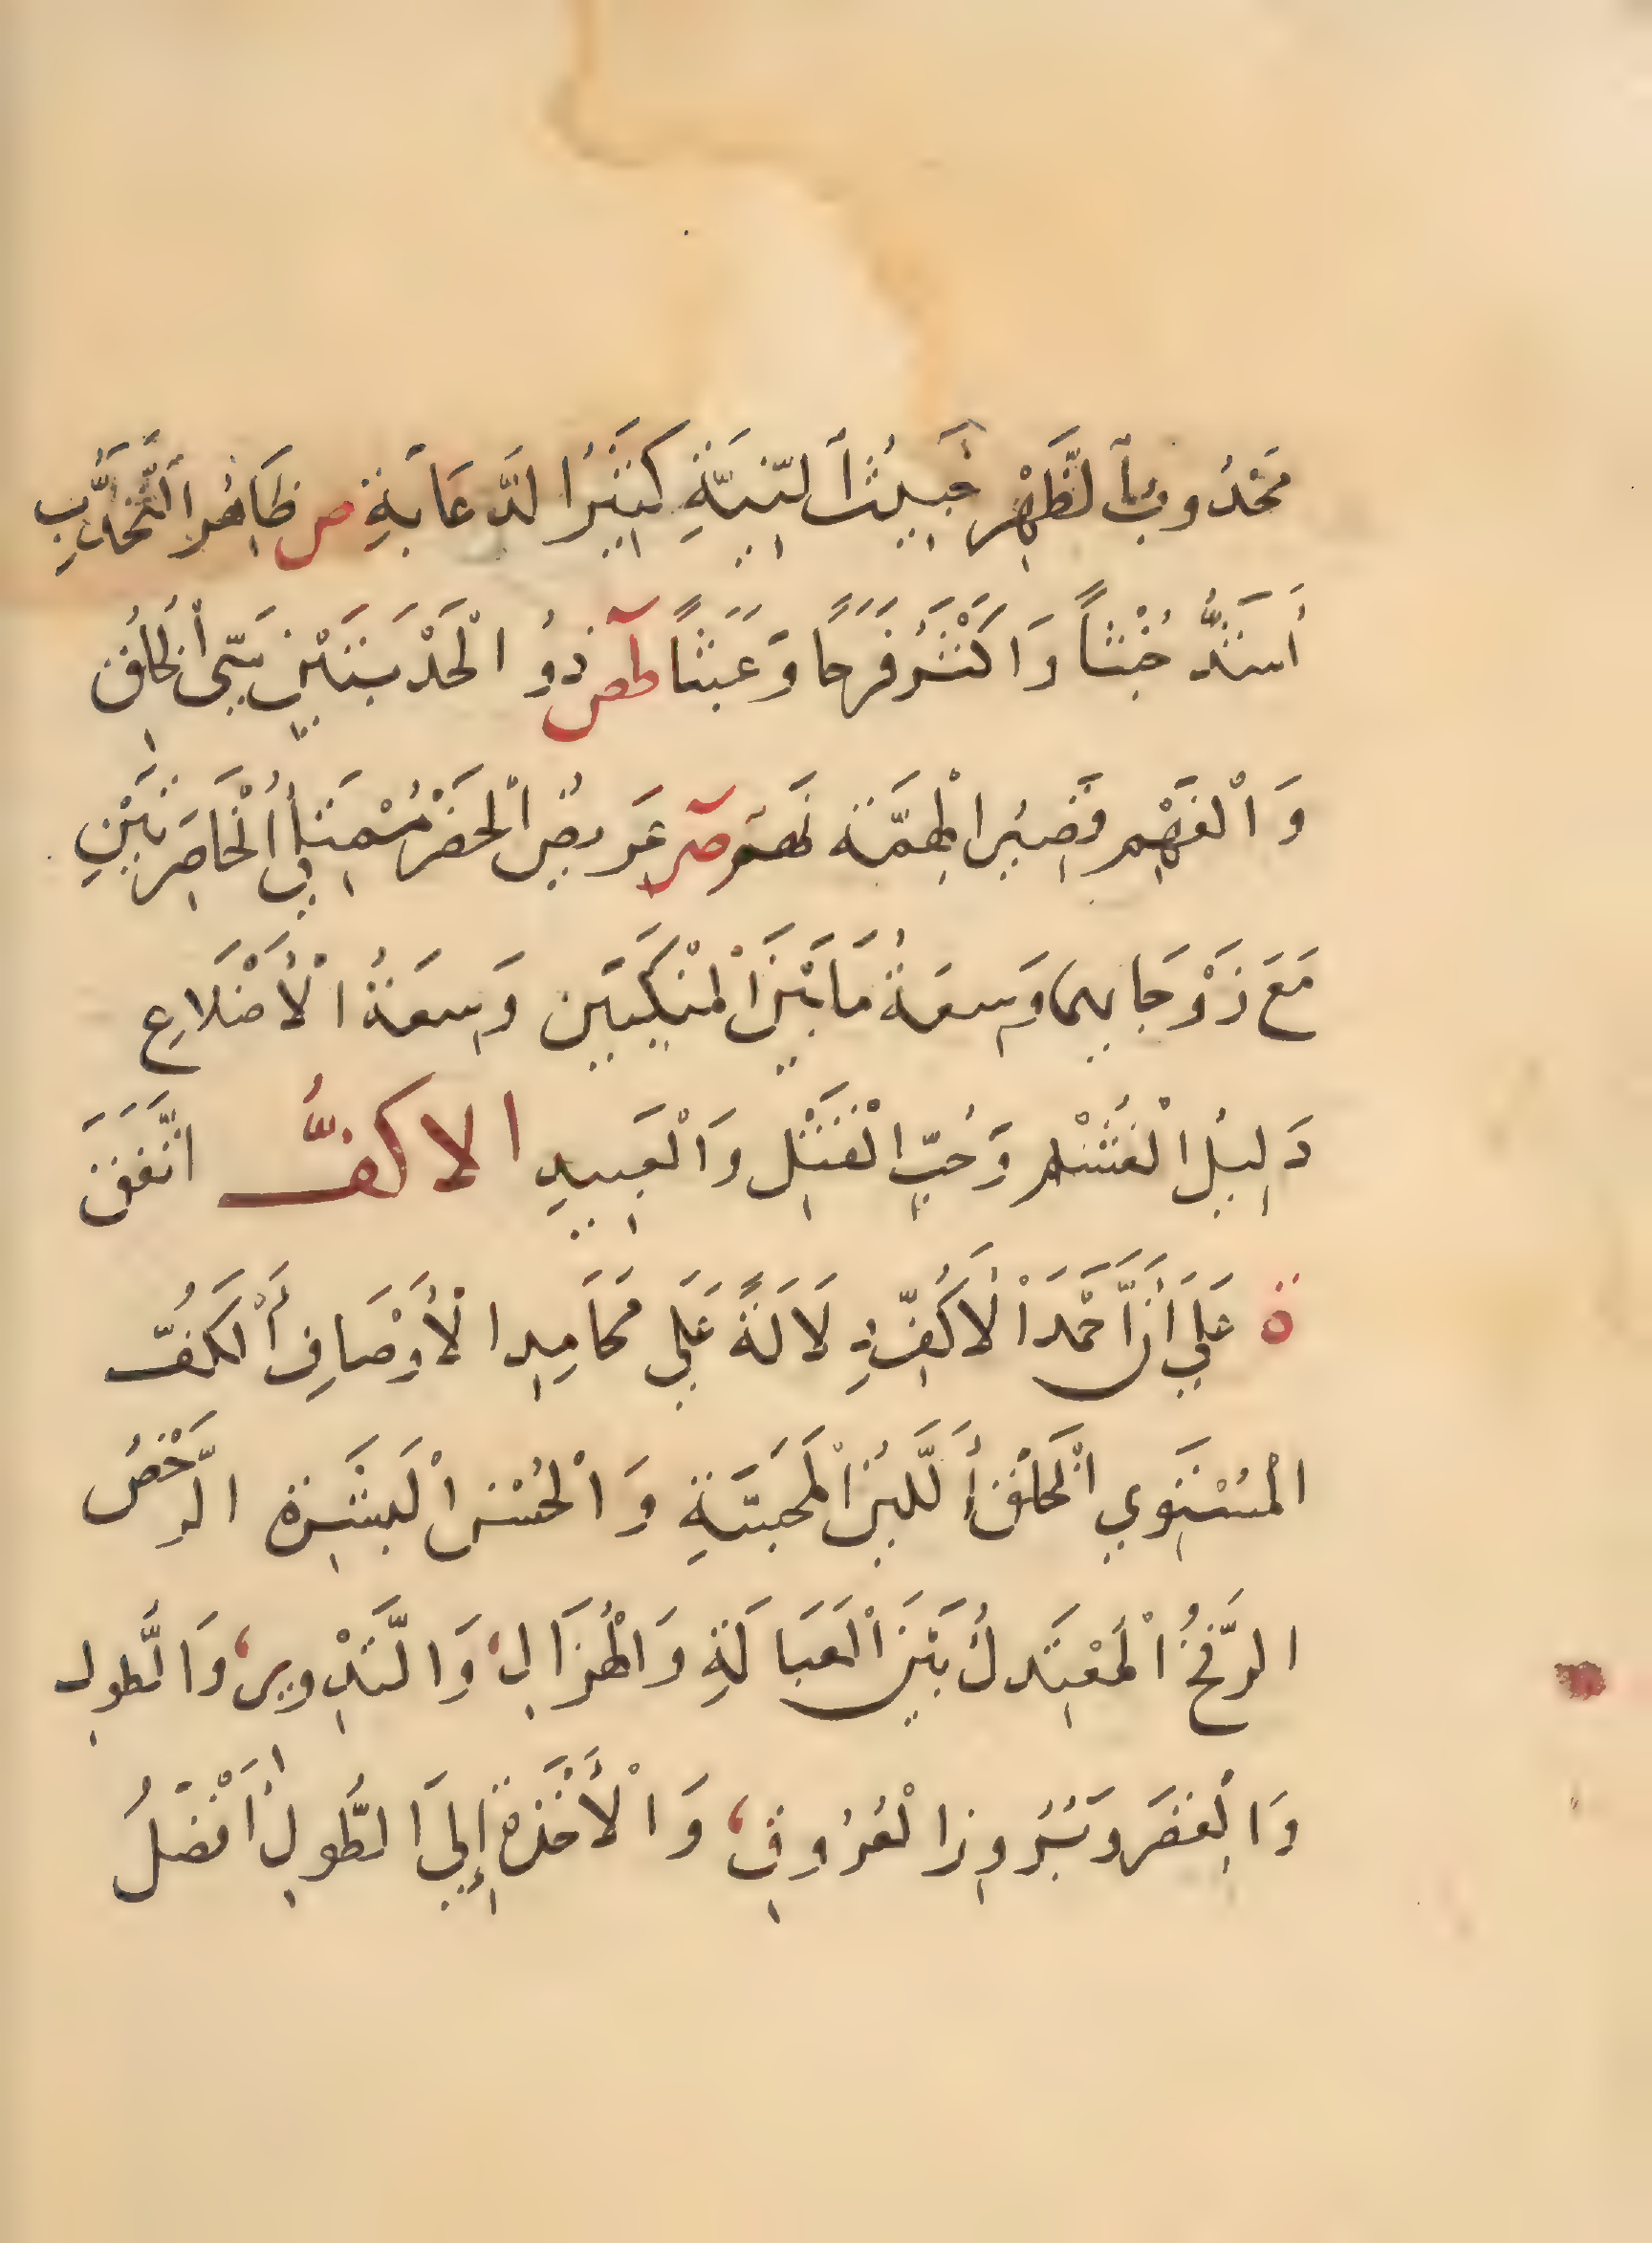 مَحْدُوبُ الظَّهْرِ خَبِيثُ النِّيَّةِ كَثِيرُ الدَّعَابَةِ ص ظَاهِرُ التَّحَدُّبِ
أَشَدُّ خُبْثًا وَاَكْثَرُ فَرَحًا وَعَبَثًا طص ذُو الْحَدْبَتَيْنِ سَيِّئُ الْخُلُقِ
وَالْفَهْمِ قَصِيرُ الْهِمَّة نحو صر عَرِيضُ الْخَصْرِ مُمْتَلِئُ الْخَاصِرَتَيْنِ
مَعَ زَوْجَا بهما وَسِعَةُ مَا بَيْنَ الْمَنْكِبَيْنِ وَسِعَةُ الْأَضْلَاعِ
دَلِيلُ الْغَشْمِ وَحُبِّ الْقَتْلِ وَالْعَبِيدِ الاكفُّ اتَّفَقَ
ة عَلَي أَنَّ أَحْمَدَ الْأَكُفِّ دِلَالَةً عَلَي مَحَامِدِ الْأَوْصَافِ أَلْكَفُّ
الْمُسْتَوِي الْخَلْقِ أَللَّيِّنُ الْمَجَسَّةِ وَالْحُسْنِ الْبَشَرَة الرَّخْصُ
الرَّخُّ الْمُعْتَدِلُ بَيْنَ الْعَبَالَةِ وَالْهُزَالِ، وَالتَّدْوِيرِ، وَالطُّولِ
وَالْقِصَرِ وَبُرُوزِ الْعُرُوقِ، وَالْأَخْذَةُ إِلَي الطُّولِ أَفْضَلُ